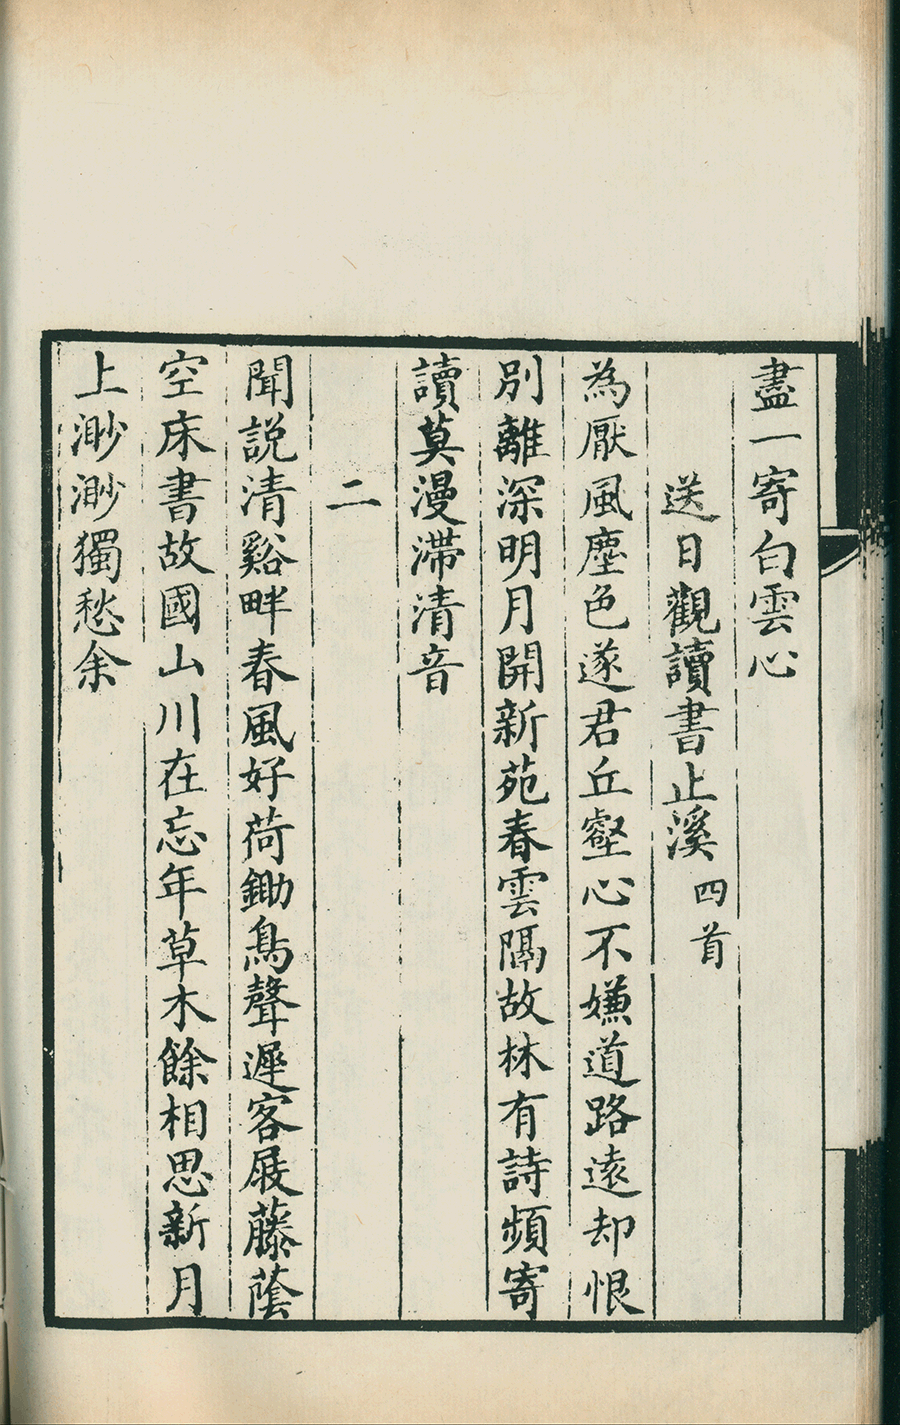 盡一寄白雲心
送日觀讀書止溪 四首
為厭風塵色遂君丘壑心不嫌道路遠却恨
別離深明月開新苑春雲隔故林有詩頻寄
讀莫漫滯清音
二
聞説清谿畔春風好荷鋤鳥聲遲客屐藤蔭
空床書故國山川在忘年草木餘相思新月
上渺渺獨愁余